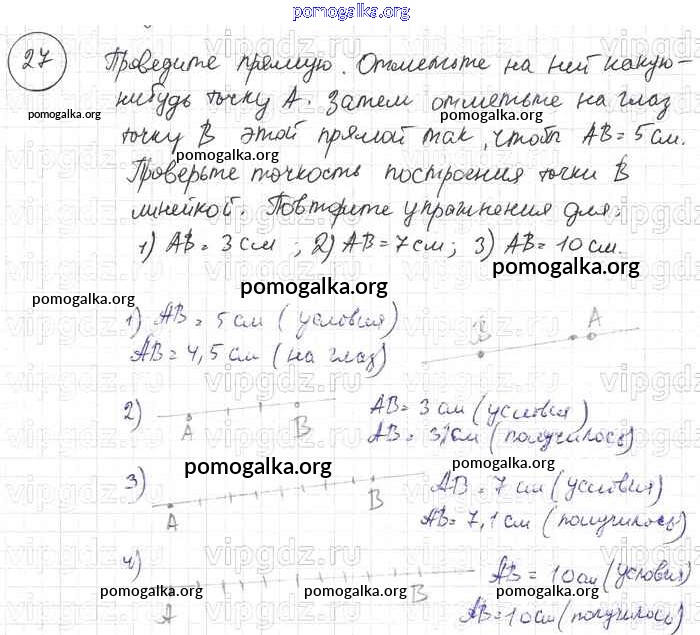 pomogalka.org
27
Проведите прямую. Отметьте на ней какую-
нибудь точку А. Затем отметьте на глаз
pomogalka.org
pomogalka.org
точку В этой прямой так, чтобы АВ = 5 см.
pomogalka.org
Проверьте точность построения точки В
линейкой. Повторите упражнения для:
1) АВ = 3 см ; 2) АВ = 7 см ; 3) АВ = 10 см.
pomogalka.org
pomogalka.org
pomogalka.org
1) АВ = 5 см (условия)
АВ = 4,5 см (на глаз)
В А
vipgdz.ru
2) А В АВ = 3 см (условия)
АВ = 3,1 см (получилось)
pomogalka.org
pomogalka.org
3) А В АВ = 7 см (условия)
АВ = 7,1 см (получилось)
vipgdz.ru
4) А В АВ = 10 см (условия)
pomogalka.org
pomogalka.org
pomogalka.org
АВ = 10 см (получилось)